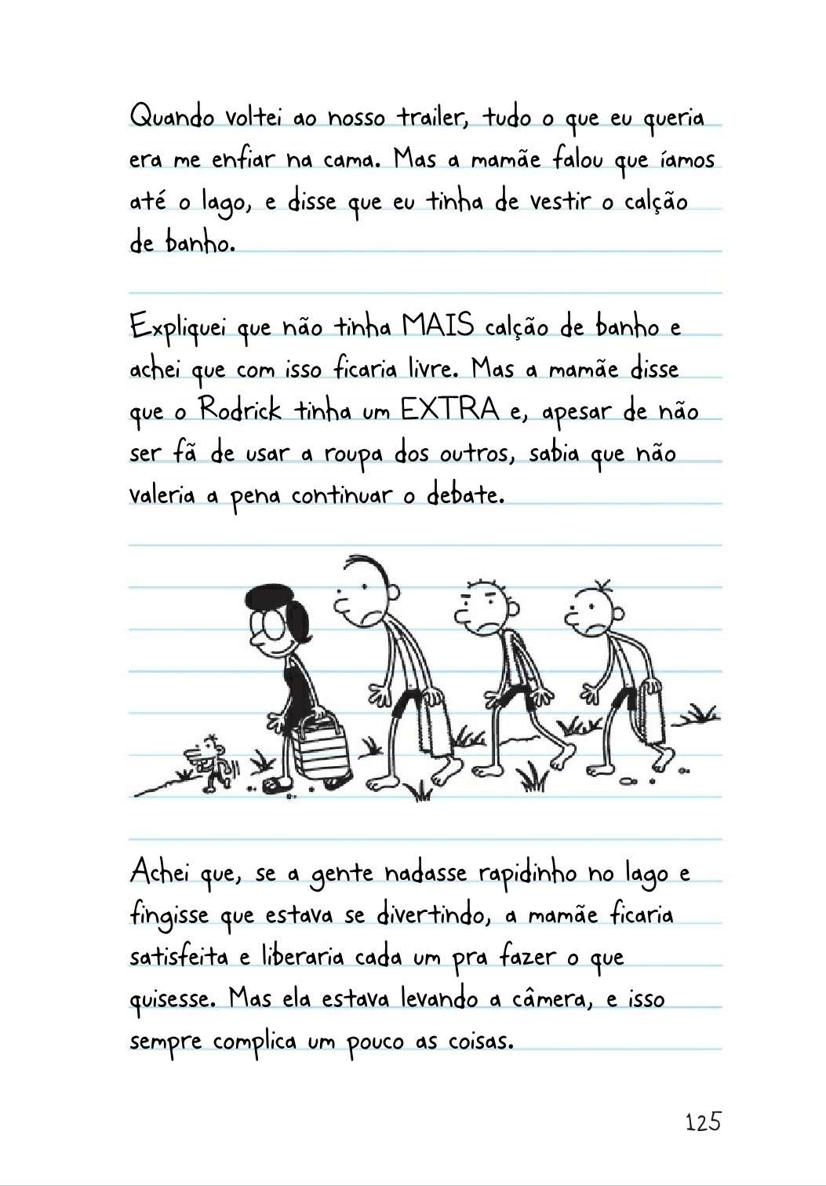 Quando voltei ao nosso trailer, tudo o que eu queria
era me enfiar na cama. Mas a mamãe falou que íamos
até o lago, e disse que eu tinha de vestir o calção
de banho.
Expliquei que não tinha MAIS calção de banho e
achei que com isso ficaria livre. Mas a mamãe disse
que o Rodrick tinha um EXTRA e, apesar de não
ser fã de usar a roupa dos outros, sabia que não
valeria a pena continuar o debate.
Achei que, se a gente nadasse rapidinho no lago e
fingisse que estava se divertindo, a mamãe ficaria
satisfeita e liberaria cada um pra fazer o que
quisesse. Mas ela estava levando a câmera, e isso
sempre complica um pouco as coisas.
125